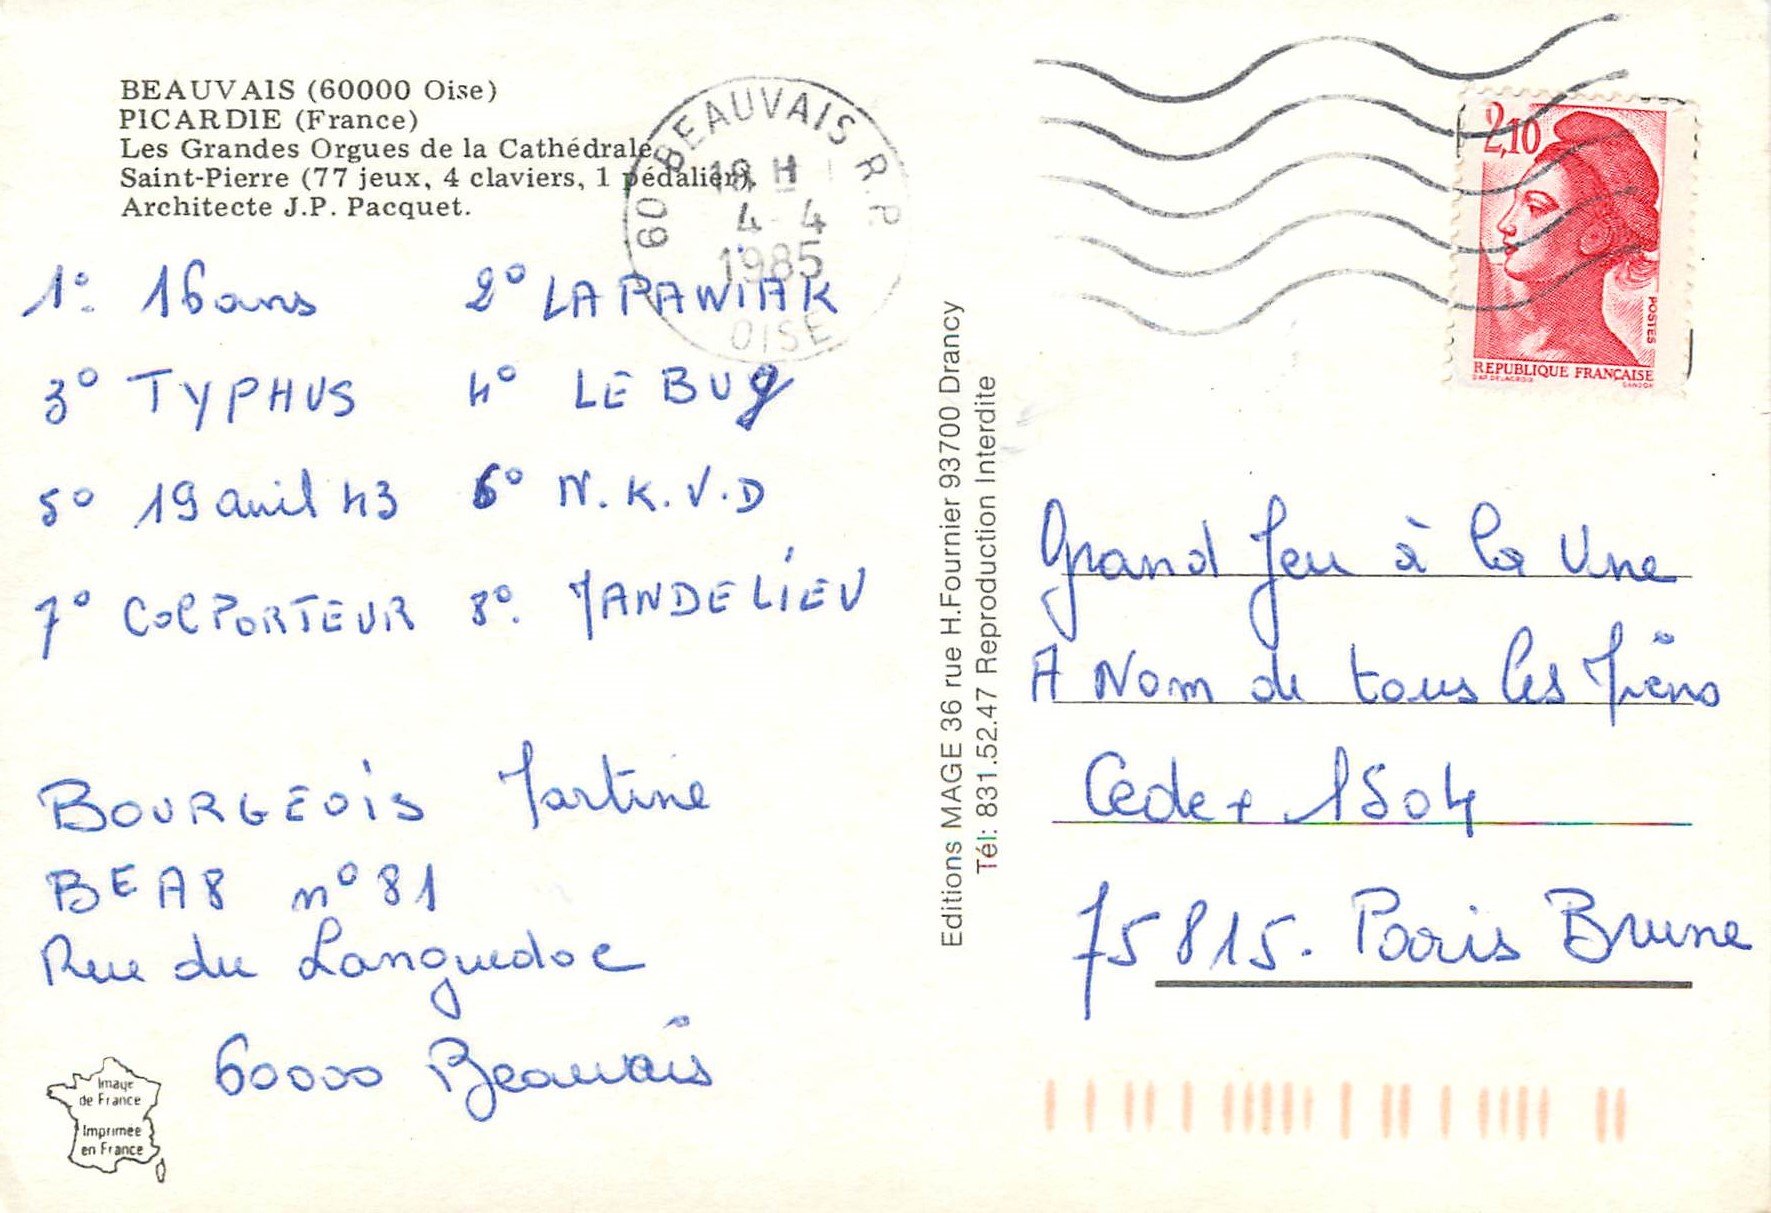 BEAUVAIS (60000 Oise)
PICARDIE (France)
Les Grandes Orgues de la Cathédrale
Saint-Pierre (77 jeux, 4 claviers, 1 pédalier).
Architecte J.P. Pacquet.
60 BEAUVAIS R.P.
18 H
4-4
1985
OISE
1° 16 ans 2° LA PAWIAK
3° TYPHUS 4° LE BUG
5° 19 avril 43 6° N.K.V.D
7° COLPORTEUR 8° MANDELIEU
BOURGEOIS Martine
BEA8 n° 81
Rue du Languedoc
60000 Beauvais
Image
de France
Imprimée
en France
Editions MAGE 36 rue H.Fournier 93700 Drancy
Tél: 831.52.47 Reproduction Interdite
2,10
POSTES
REPUBLIQUE FRANÇAISE
D'AP. DELACROIX GANDON
Grand Jeu à la Une
A Nom de tous les Miens
Cedex 1504
75815. Paris Brune